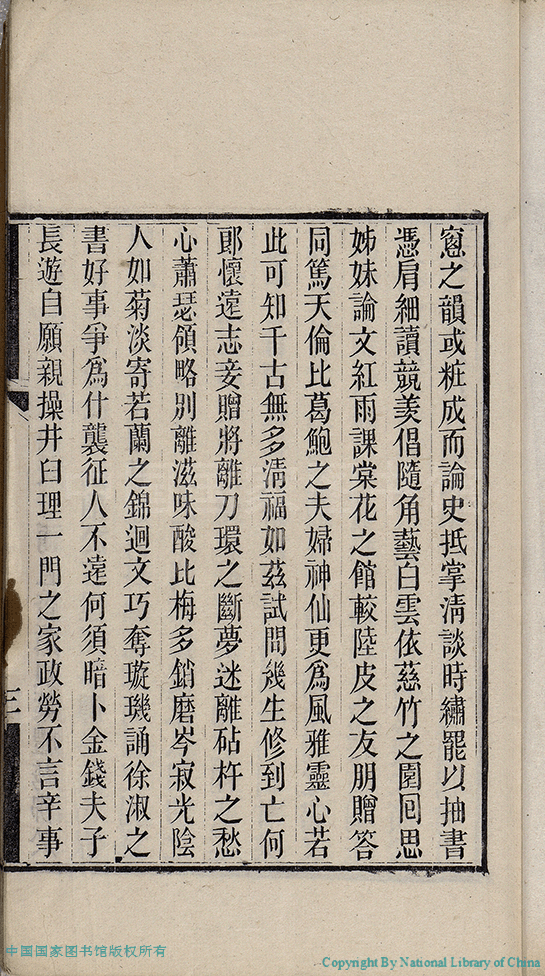 窻之韻或粧成而論史抵掌淸談時繡罷以抽書
憑肩細讀競羡倡隨角藝白雲依慈竹之園囘思
姊妹論文紅雨課棠花之館較陸皮之友朋贈答
同篤天倫比葛鮑之夫婦神仙更爲風雅靈心若
此可知千古無多淸福如茲試問幾生修到亡何
郎懷遠志妾贈將離刀環之斷夢迷離砧杵之愁
心蕭瑟領略別離滋味酸比梅多銷磨岑寂光陰
人如菊淡寄若蘭之錦迴文巧奪璇璣誦徐淑之
書好事爭爲什襲征人不遠何須暗卜金錢夫子
長遊自願親操井臼理一門之家政勞不言辛事
三
中国国家图书馆版权所有
Copyright By National Library of China